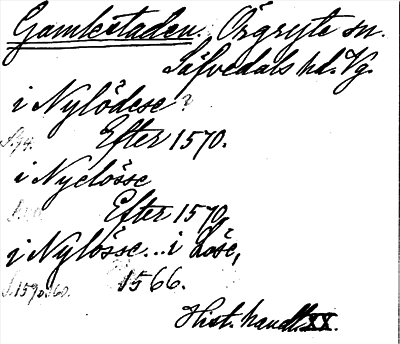 Gamlestaden. Örgryte sn.
Säfvedals hd. Vg.
i Nylödese?
Efter 1570.
i Nyelösse
Efter 1570,
i Nylösse... i Löse,
1566.
S. 159. 160.
Hist. handl. XX.